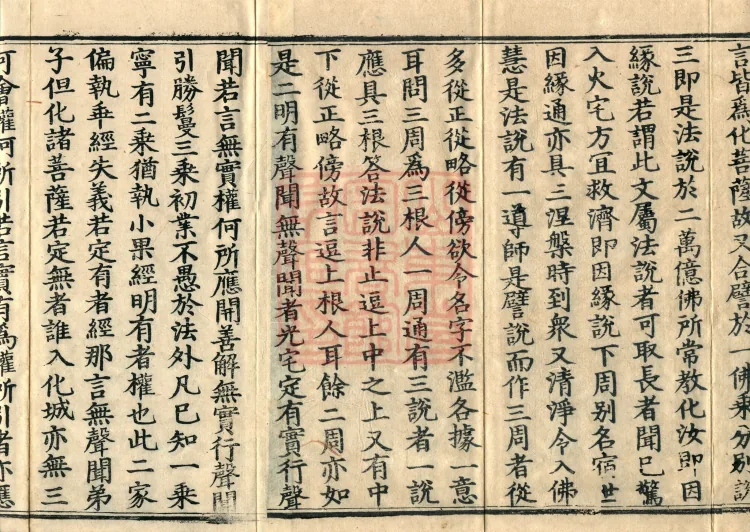 言皆為化菩薩故又合譬於一佛乘分別說
三即是法說於二萬億佛所常教化汝即因
緣說若謂此文屬法說者可取長者聞已驚
入火宅方宜救濟即因緣說下周別名宿世
因緣通亦具三涅槃時到眾又清淨令入佛
慧是法說有一導師是譬說而作三周者從
多從正從略從傍欲令名字不濫各據一意
耳問三周為三根人一周通有三說者一說
應具三根答法說非止逗上中之上又有中
下從正略傍故言逗上根人耳餘二周亦如
是二明有聲聞無聲聞者光宅定有實行聲
聞若言無實權何所應開善解無實行聲聞
引勝鬘三乘初業不愚於法外凡已知一乘
寧有二乘猶執小果經明有者權也此二家
偏執乖經失義若定有者經那言無聲聞弟
子但化諸菩薩若定無者誰入化城亦無三
可會權何所引若言實有為權所引者亦應